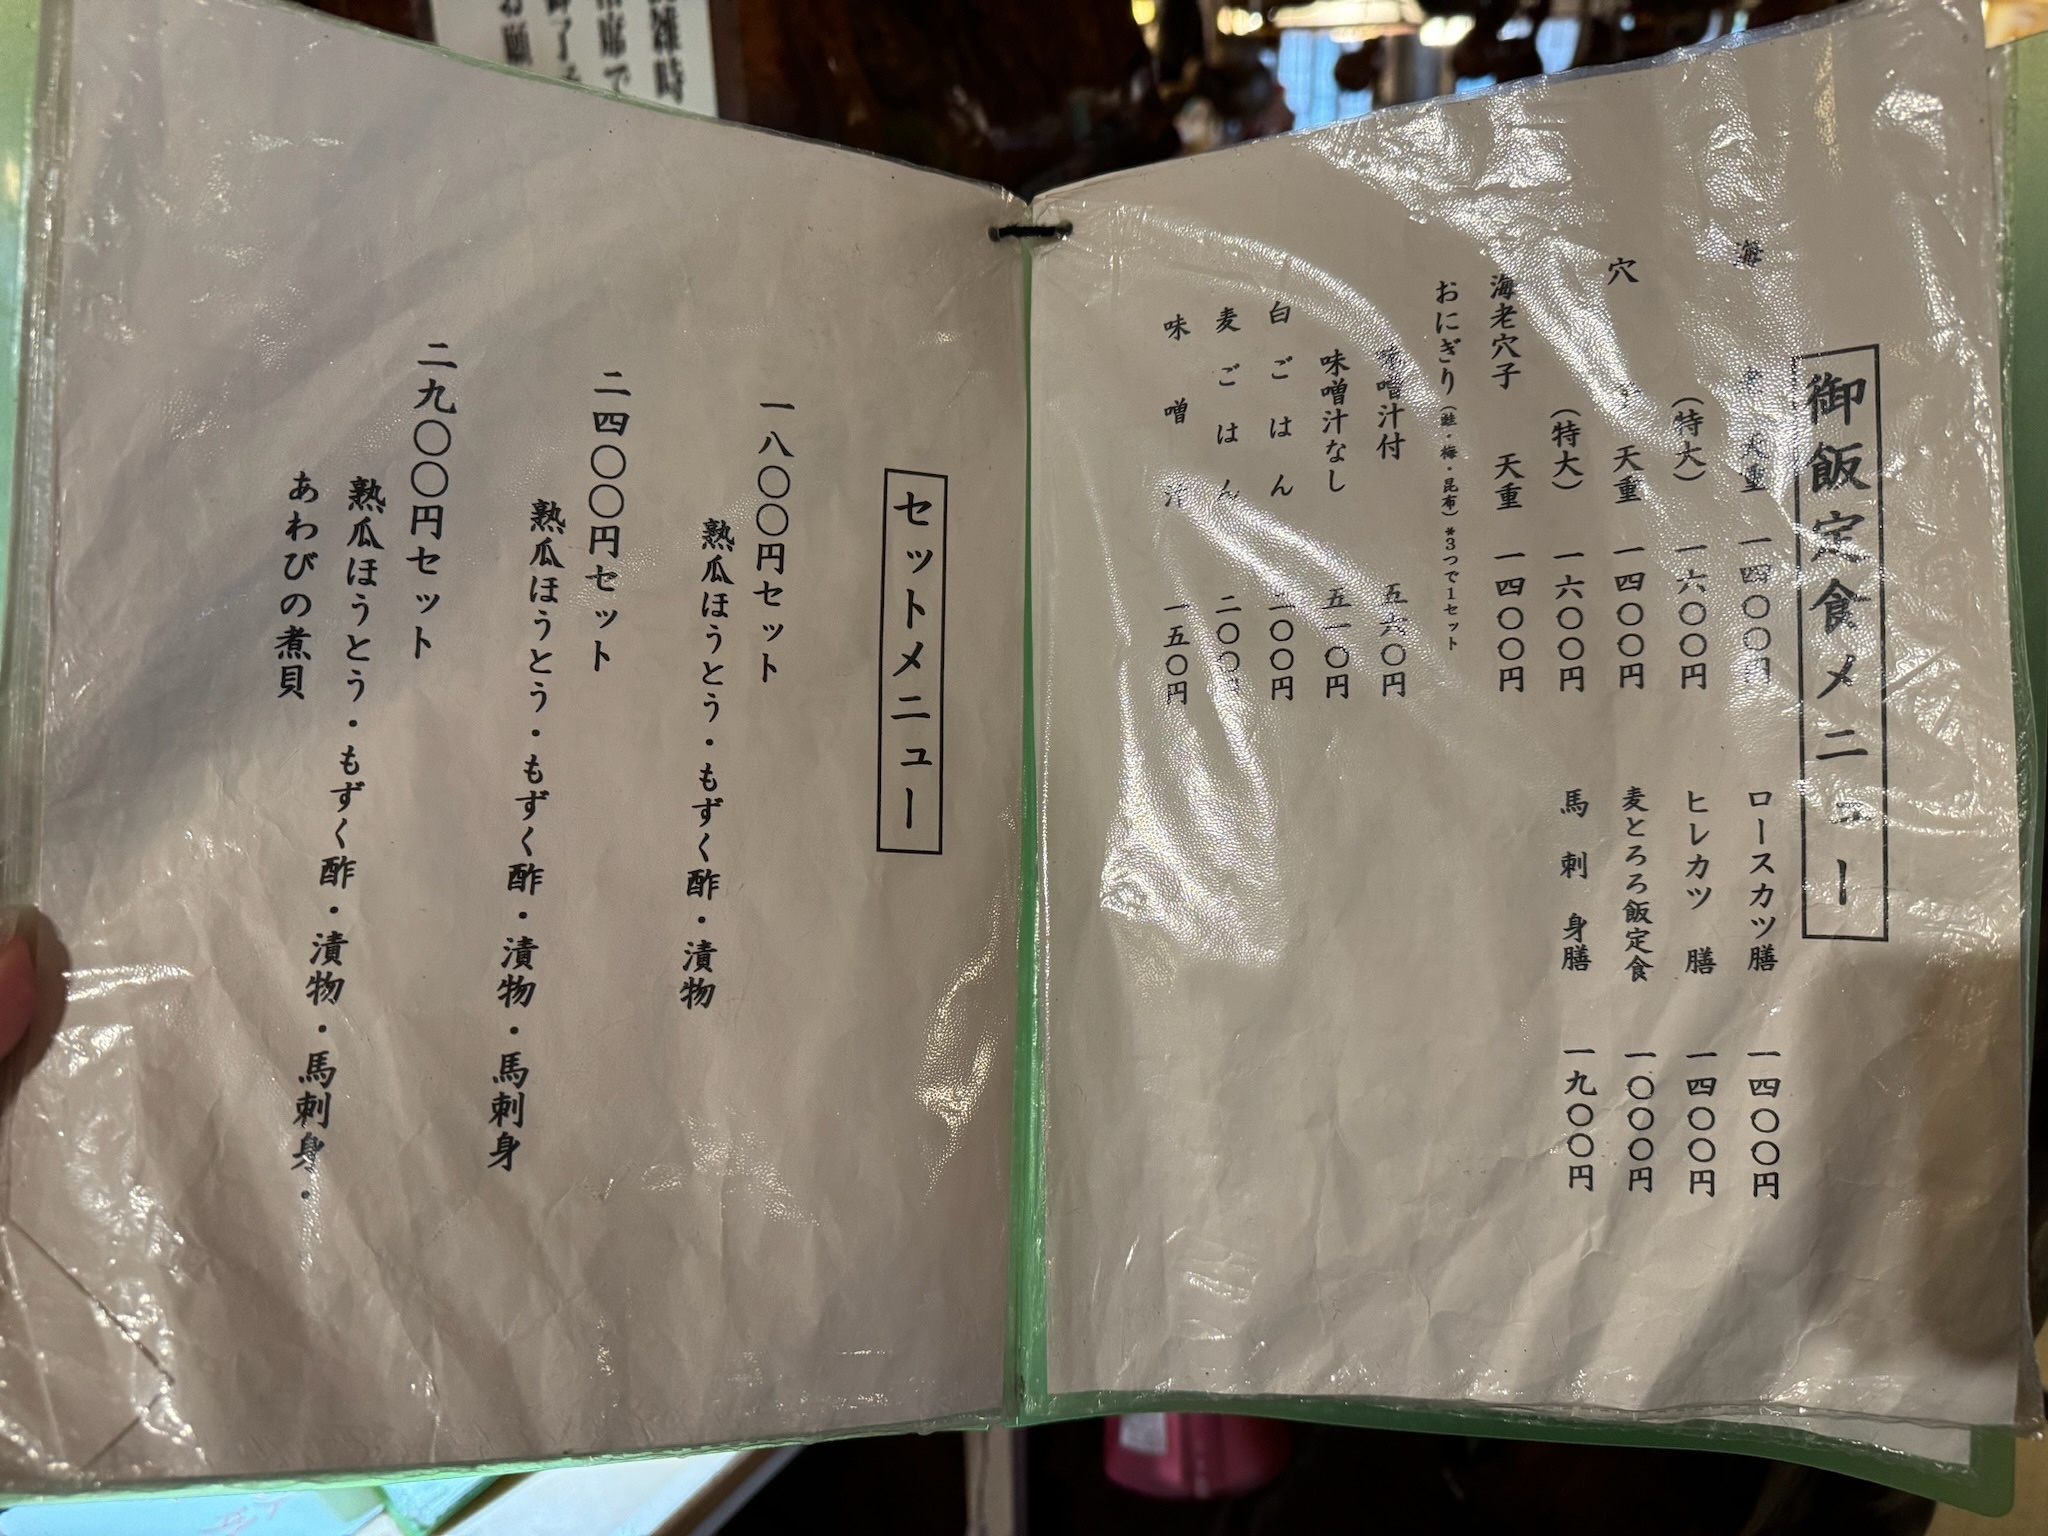 御飯定食メニュー
海老天重 一四〇〇円
(特大) 一六〇〇円
穴子天重 一四〇〇円
(特大) 一六〇〇円
海老穴子天重 一四〇〇円
おにぎり(鮭・梅・昆布)*3つで1セット
味噌汁付 五六〇円
味噌汁なし 五一〇円
白ごはん 二〇〇円
麦ごはん 二〇〇円
味噌汁 一五〇円
ロースカツ膳 一四〇〇円
ヒレカツ膳 一四〇〇円
麦とろろ飯定食 一〇〇〇円
馬刺身膳 一九〇〇円
セットメニュー
一八〇〇円セット
熟瓜ほうとう・もずく酢・漬物
二四〇〇円セット
熟瓜ほうとう・もずく酢・漬物・馬刺身
二九〇〇円セット
熟瓜ほうとう・もずく酢・漬物・馬刺身・
あわびの煮貝